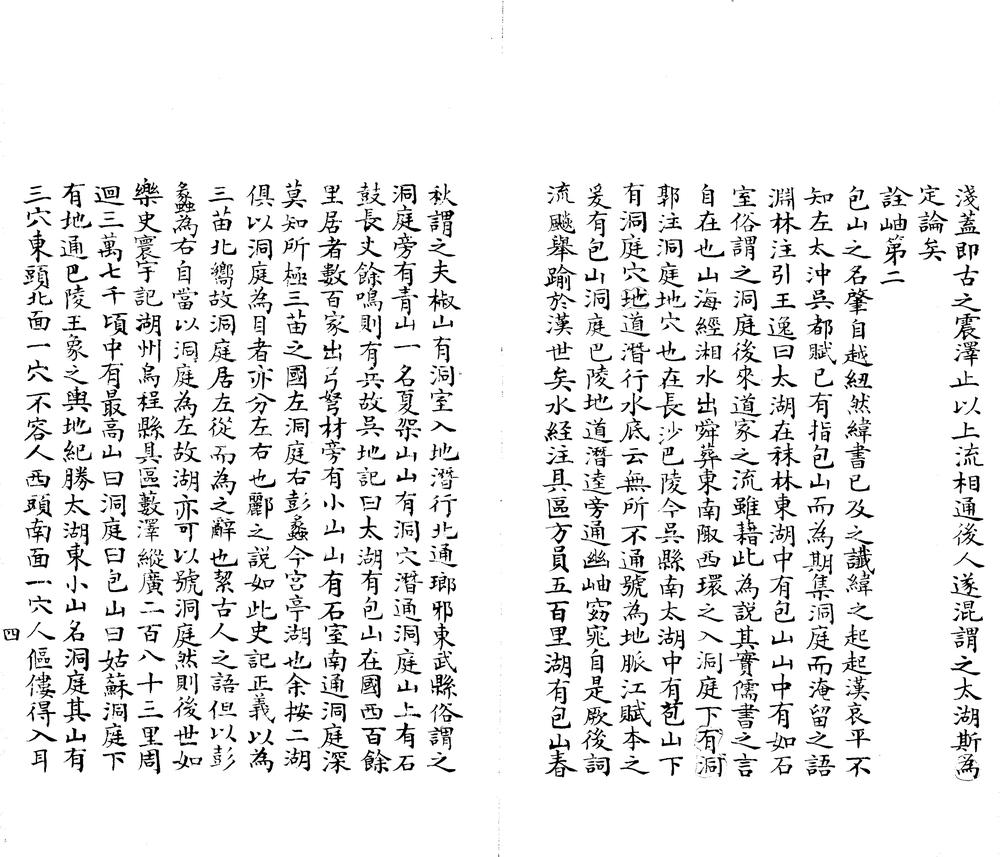 淺蓋即古之震澤止以上流相通後人遂混謂之太湖斯為
定論矣
詮岫第二
包山之名肇自越紐然緯書已及之讖緯之起起漢哀平不
知左太沖吳都賦已有指包山而為期集洞庭而淹留之語
淵林注引王逸曰太湖在秣林東湖中有包山山中有如石
室俗謂之洞庭後來道家之流雖藉此為說其實儒書之言
自在也山海經湘水出舜葬東南陬西環之入洞庭下有洞
郭注洞庭地穴也在長沙巴陵今吳縣南太湖中有苞山下
有洞庭穴地道潛行水底云無所不通號為地脈江賦本之
爰有包山洞庭巴陵地道潛逵旁通幽岫窈窕自是厥後詞
流飈舉踰於漢世矣水経注具區方員五百里湖有包山春
秋謂之夫椒山有洞室入地潛行北通瑯邪東武縣俗謂之
洞庭旁有青山一名夏架山山有洞穴潛通洞庭山上有石
鼓長丈餘鳴則有兵故吳地記曰太湖有包山在國西百餘
里居者數百家出弓弩材旁有小山山有石室南通洞庭深
莫知所極三苗之國左洞庭右彭蠡今宮亭湖也余按二湖
俱以洞庭為目者亦分左右也酈之説如此史記正義以為
三苗北嚮故洞庭居左從而為之辭也絜古人之語但以彭
蠡為右自當以洞庭為左故湖亦可以號洞庭然則後世如
樂史寰宇記湖州烏程縣具區藪澤縱廣二百八十三里周
迴三萬七千頃中有最高山曰洞庭曰包山曰姑蘇洞庭下
有地通巴陵王象之輿地紀勝太湖東小山名洞庭其山有
三穴東頭北面一穴不容人西頭南面一穴人傴僂得入耳
四